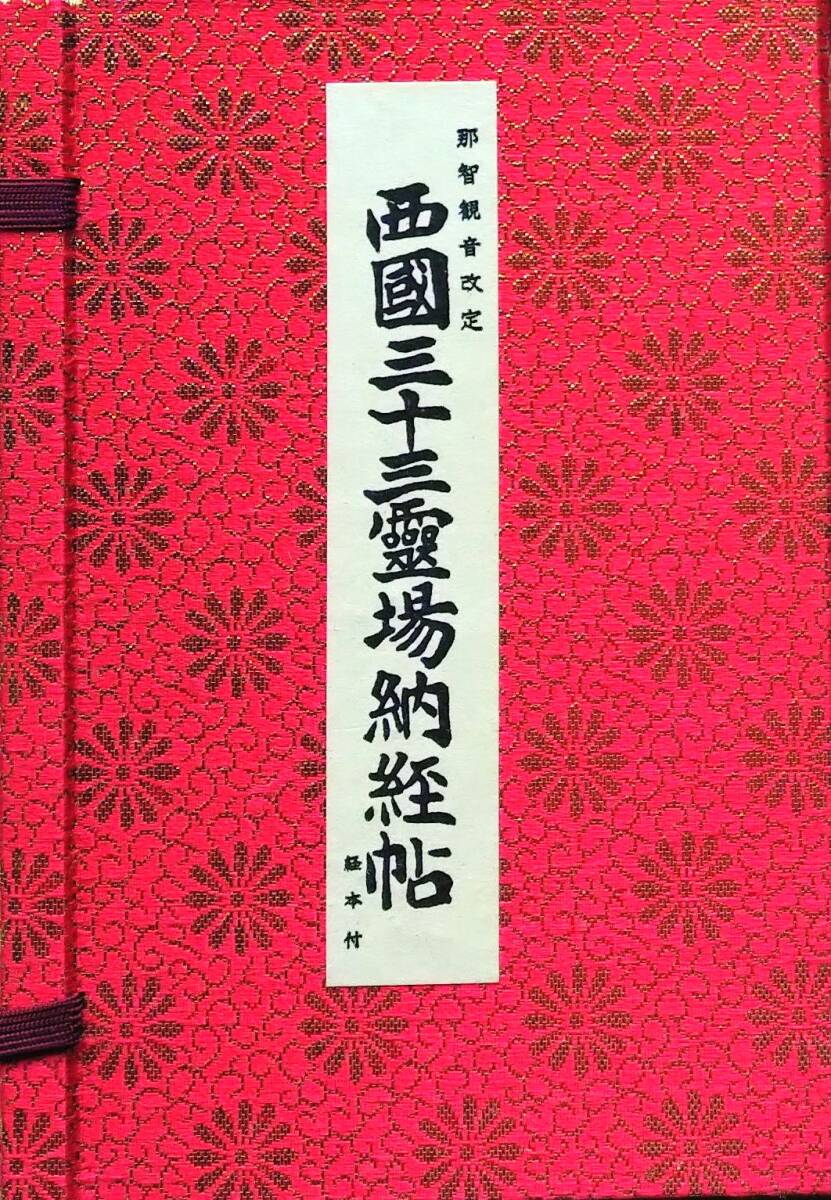 那智観音改定
西國三十三靈場納経帖
経本付